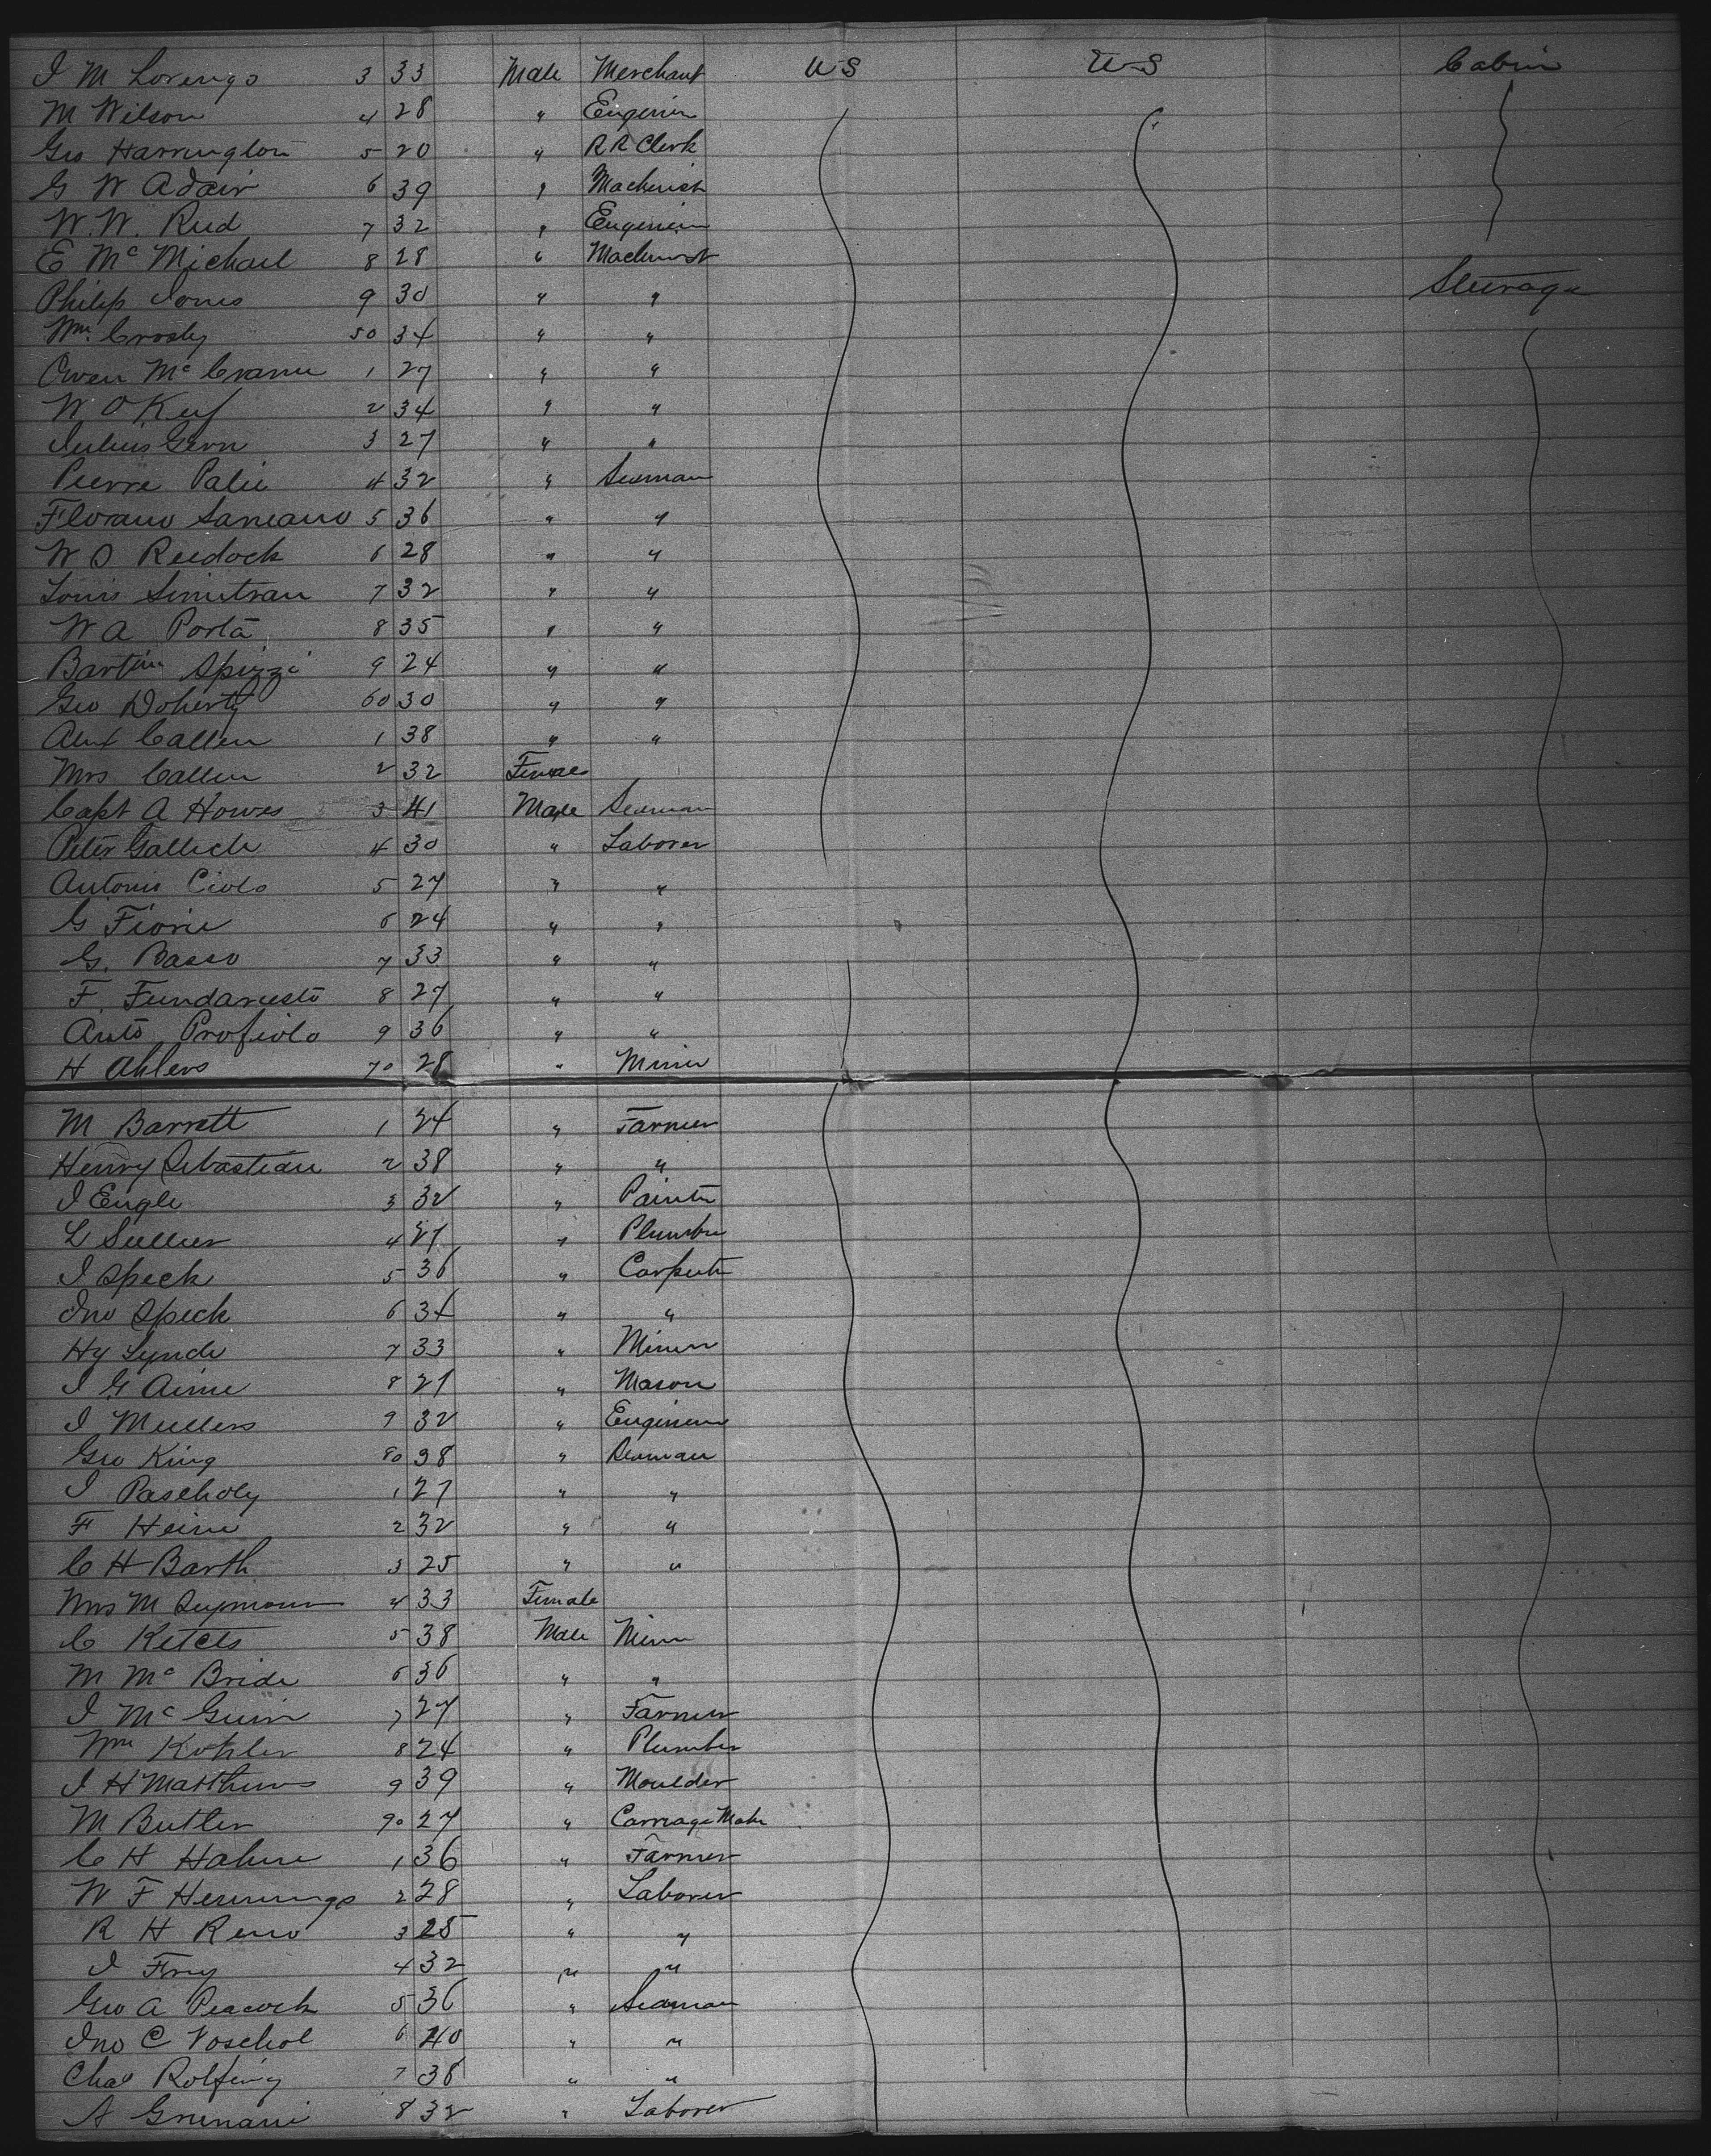 J M Lorenzo 3 33 Male Merchant U S U S Cabin
M Wilson 4 28 " Engineer
Geo Harrington 5 20 " R R Clerk
G W Adair 6 39 " Machinist
W. W. Reed 7 32 " Engineer
E Mc Michael 8 28 " Machinist
Philip Jones 9 30 " " Steerage
Wm. Crosby 50 34 " "
Owen Mc Crann 1 27 " "
W O Keef 2 34 " "
Julius Gern 3 27 " "
Pierre Palie 4 32 " Seaman
Florano 5 36 " "
W S Reedock 6 28 " "
Louis 7 32 " "
W A Porta 8 35 " "
Spizzi 9 24 " "
Geo Doherty 60 30 " "
Alex Callen 1 38 " "
Mrs Callen 2 32 Female
Capt A Howes 3 41 Male Seaman
Peter 4 30 " Laborer
Antonio Ciolo 5 27 " "
G Fiorie 6 24 " "
G. Basso 7 33 " "
F. 8 27 " "
Anto Profiolo 9 36 " "
H Ahlers 70 28 " Miner
M Barrett 1 24 " Farmer
Henry Sebastian 2 38 " "
J Engle 3 32 " Painter
L 4 27 " Plumber
J Speck 5 36 " Carpenter
Jno Speck 6 34 " "
Hy Lynde 7 33 " Miner
J G Aime 8 27 " Mason
J Mullers 9 32 " Engineer
Geo King 80 38 " Seaman
J Pascholy 1 27 " "
F Heine 2 32 " "
C H Barth 3 25 " "
Mrs M Seymour 4 33 Female
C Ketets 5 38 Male Miner
M Mc Bride 6 36 " "
J Mc Guin 7 27 " Farmer
Wm Kohler 8 24 " Plumber
J H Matthews 9 39 " Moulder
M Butler 90 27 " Carriage Maker
C H Hahne 1 36 " Farmer
W F Hennings 2 28 " Laborer
R H Reno 3 25 " "
J Frey 4 32 " "
Geo A Peacock 5 36 " Seaman
Jno C Voschol 6 40 " "
Chas Rolfing 7 38 " "
A 8 32 " Laborer